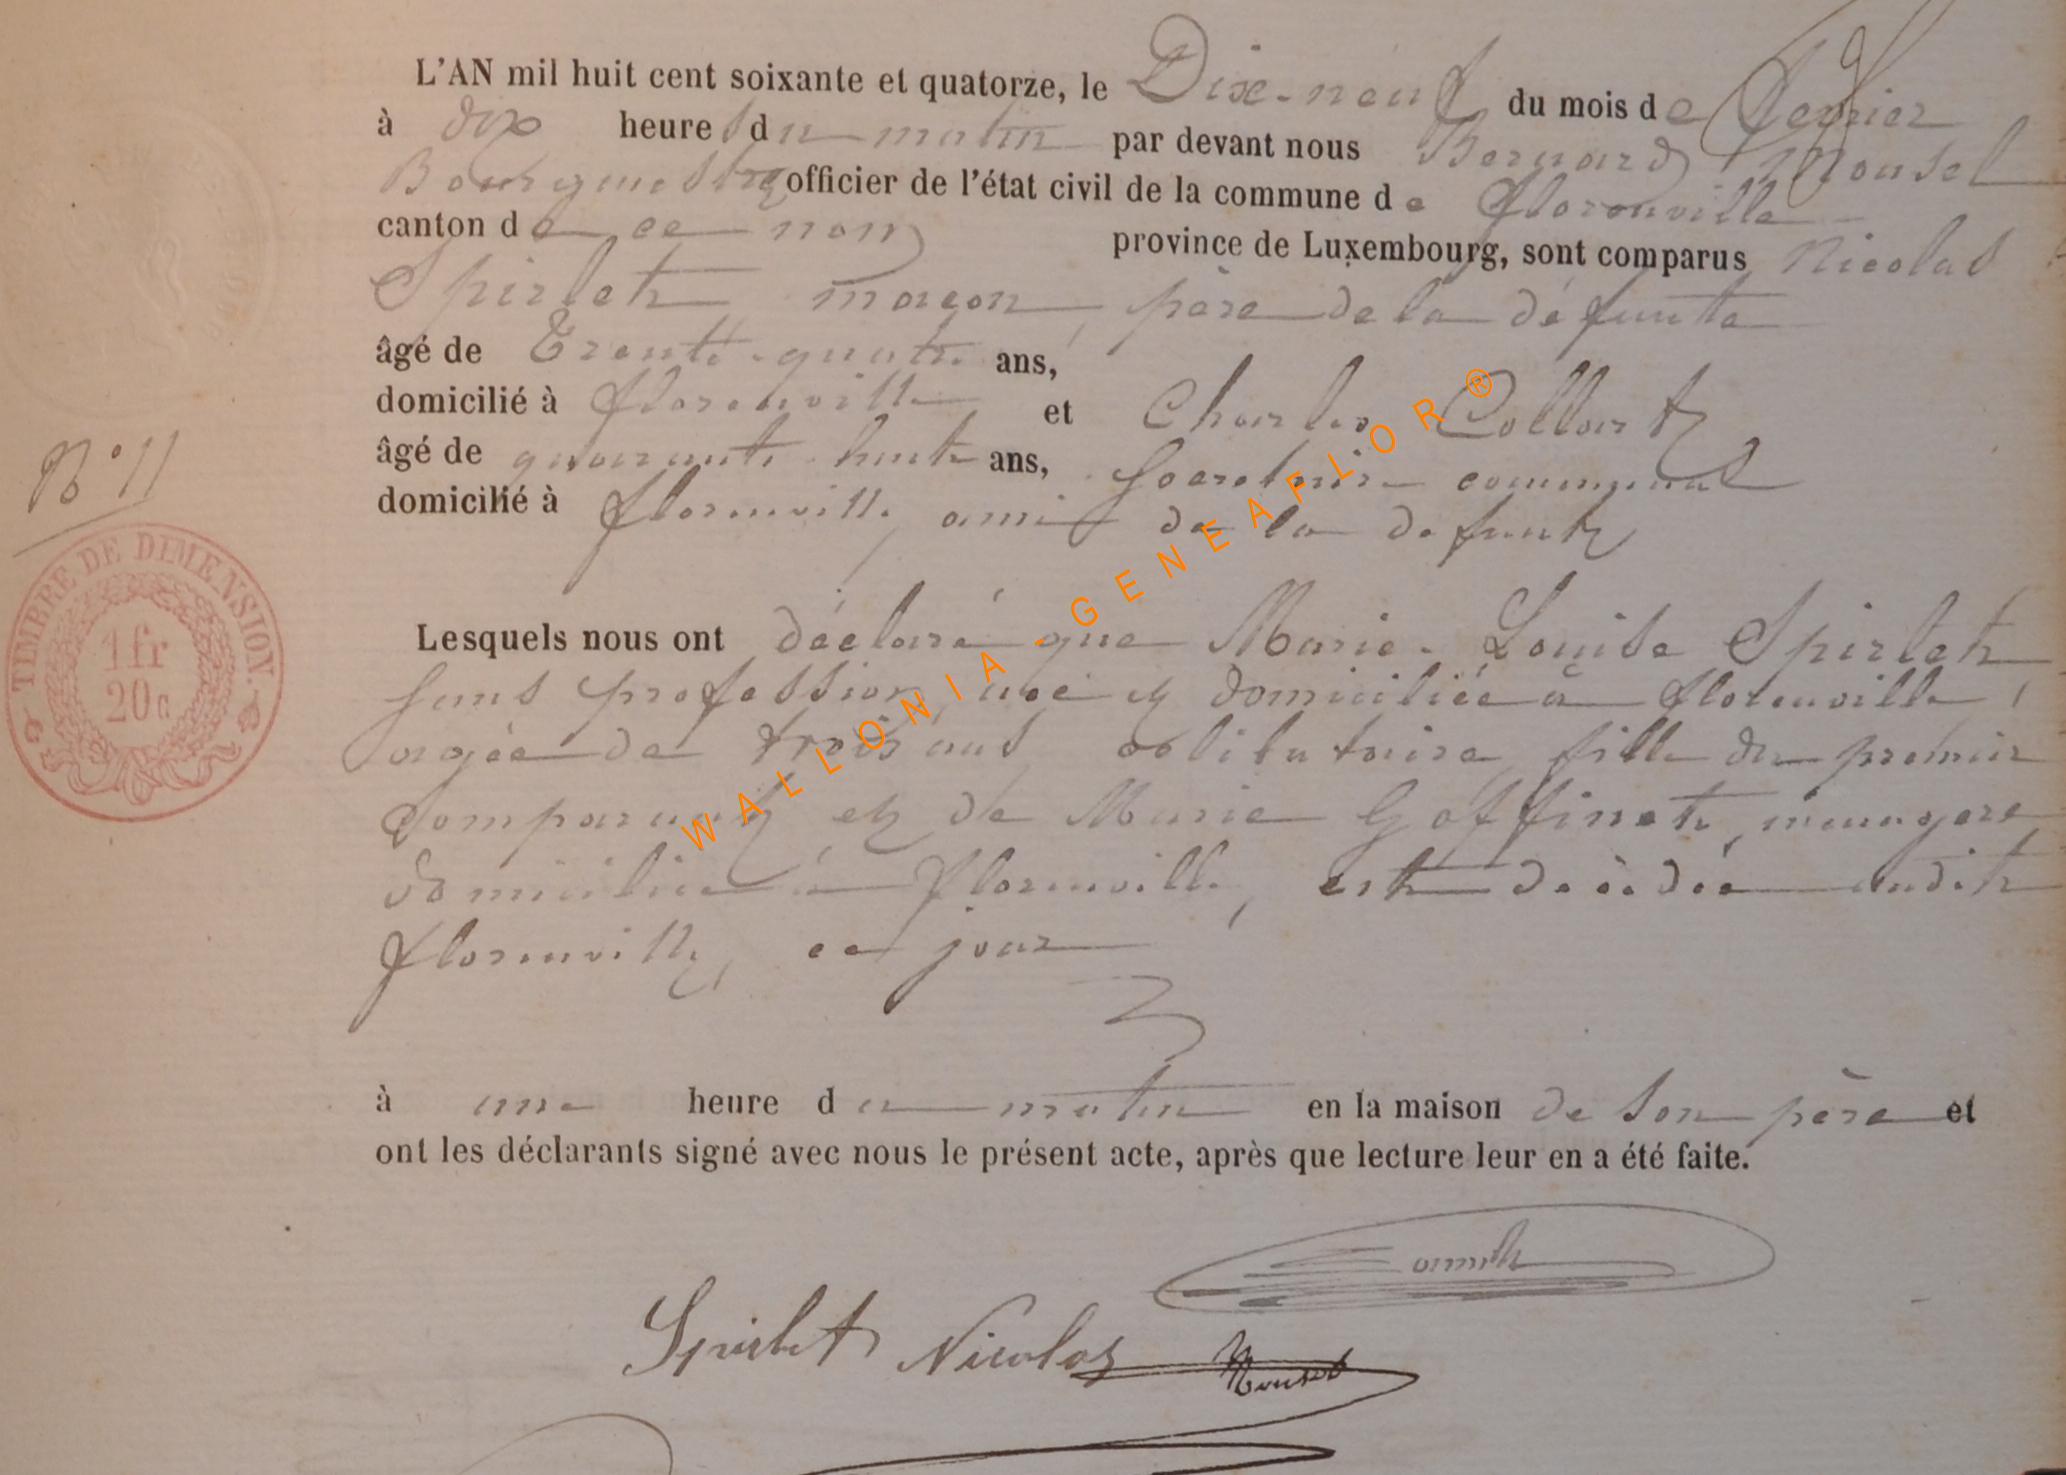 L'AN mil huit cent soixante et quatorze, le Dix-neuf du mois de fevrier
à dix heures du matin par devant nous Bernard Mousel
Bourgmestre officier de l'état civil de la commune de florenville
canton de ce nom province de Luxembourg, sont comparus Nicolas
Spirlet maçon, père de la défunte
âgé de Trente-quatre ans,
domicilié à florenville et Charles Collart
âgé de quarante-huit ans, Secretaire communal
domicilié à florenville, ami de la defunte
N° 11
TIMBRE DE DIMENSION.
1 fr
20 c
Lesquels nous ont déclaré que Marie-Louise Spirlet
sans profession, née et domiciliée à florenville,
agée de trois ans celibataire fille du premier
Comparant et de Marie Goffinet, menagere
domiciliée à florenville, est décédée audit
florenville, ce jour
à une heure du matin en la maison de son père et
ont les déclarants signé avec nous le présent acte, après que lecture leur en a été faite.
Spirlet Nicolas Mousel
WALLONIA - GENEAFLOR ®